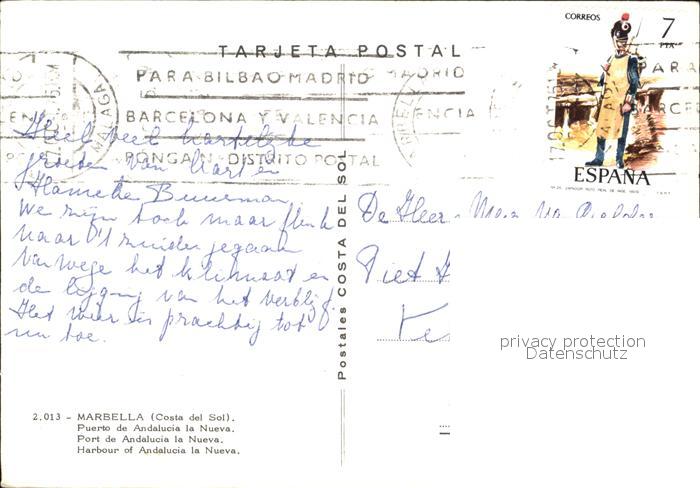 TARJETA POSTAL
PARA BILBAO MADRID
BARCELONA Y VALENCIA
PONGA N. DISTRITO POSTAL
MALAGA
CORREOS
7
PTA
ESPAÑA
Heel veel hartelijke
groeten van Mart en
Hanneke Buurman.
We zijn toch maar flink
naar 't zuiden gegaan
vanwege het klimaat en
de ligging van het verblijf.
Het weer is prachtig tot
nu toe.
Postales COSTA DEL SOL
De Heer - Mevr
Piet
privacy protection
Datenschutz
2.013 - MARBELLA (Costa del Sol).
Puerto de Andalucia la Nueva.
Port de Andalucia la Nueva.
Harbour of Andalucia la Nueva.